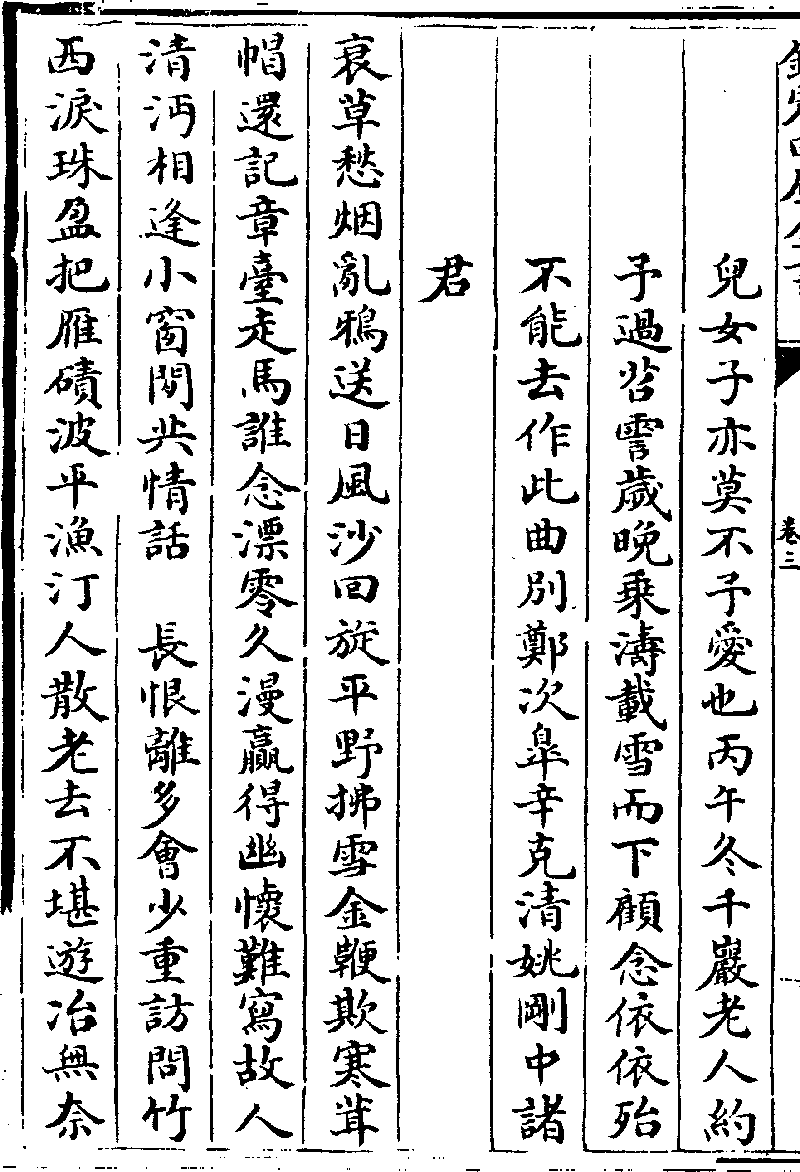 卷三
兒女子亦莫不予愛也丙午冬千巖老人約
予過苕霅歲晚乗濤載雪而下顧念依依殆
不能去作此曲別鄭次臯辛克清姚剛中諸
君
衰草愁烟亂鴉送日風沙回旋平野拂雪金鞭欺寒茸
帽還記章臺走馬誰念漂零久漫贏得幽懷難寫故人
清沔相逢小窗閒共情話　長恨離多會少重訪問竹
西淚珠盈把雁磧波平漁汀人散老去不堪遊冶無奈